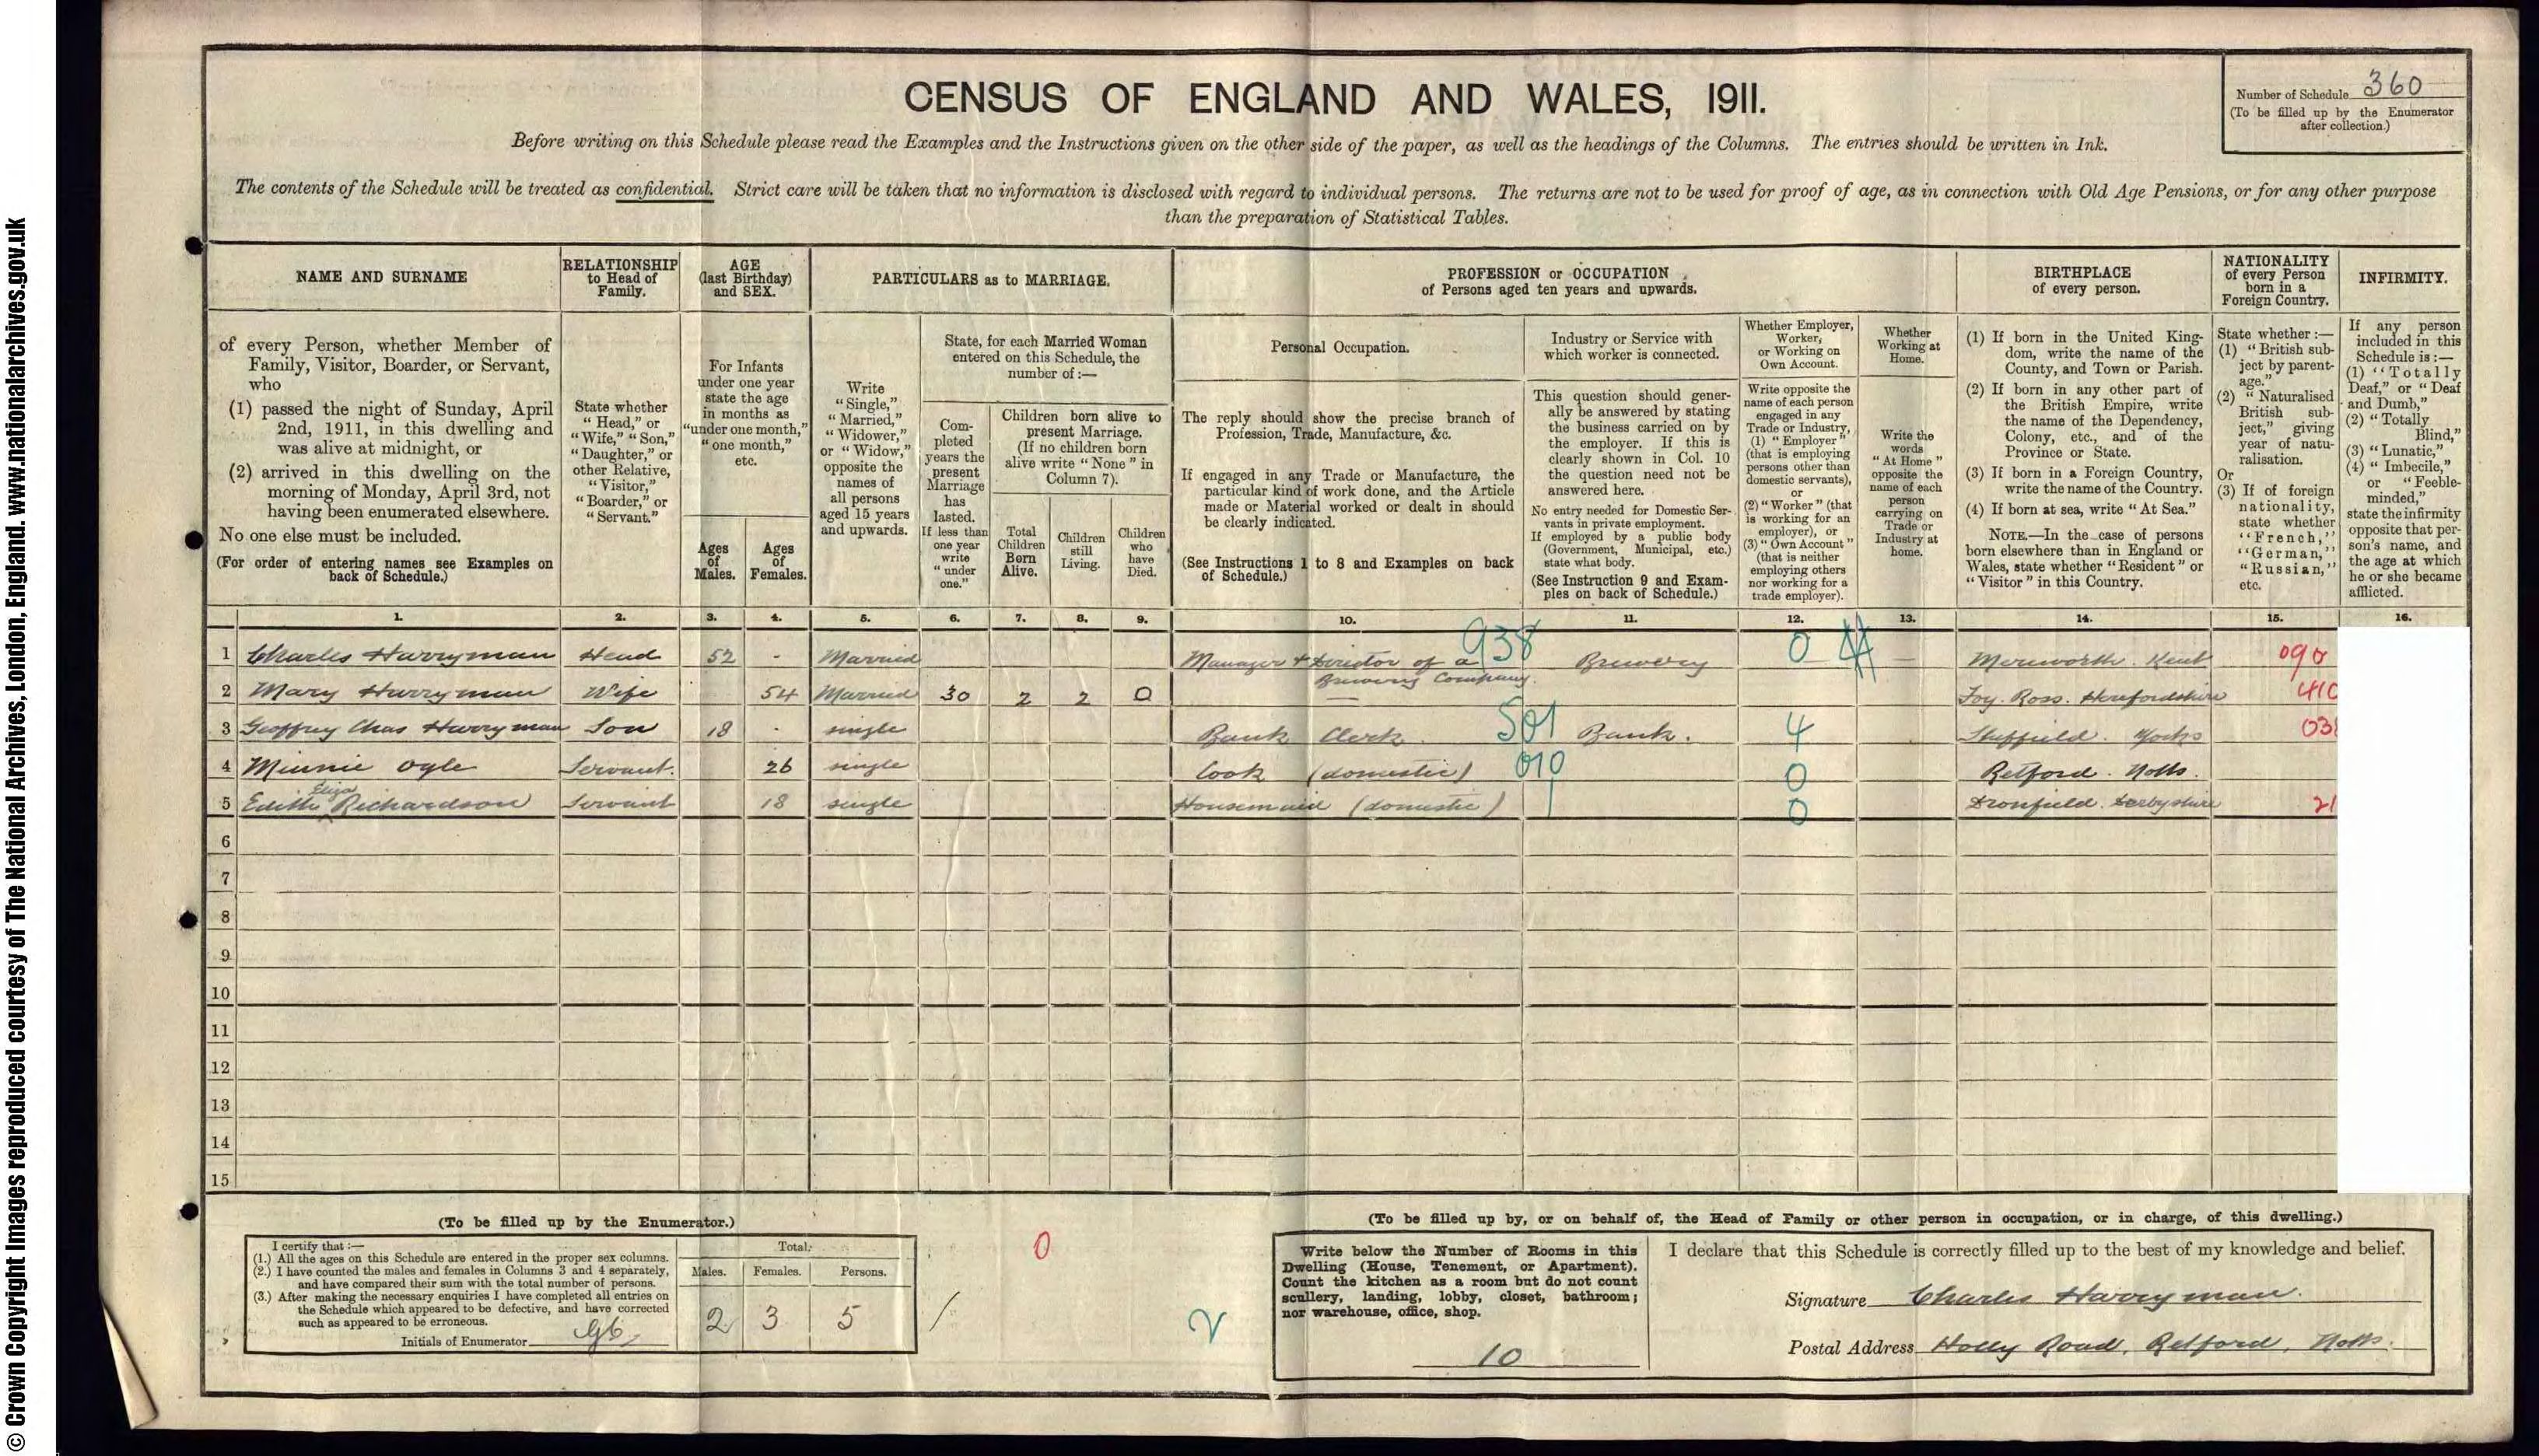 CENSUS OF ENGLAND AND WALES, 1911.
Number of Schedule 360
(To be filled up by the Enumerator
after collection.)
Before writing on this Schedule please read the Examples and the Instructions given on the other side of the paper, as well as the headings of the Columns. The entries should be written in Ink.
The contents of the Schedule will be treated as confidential. Strict care will be taken that no information is disclosed with regard to individual persons. The returns are not to be used for proof of age, as in connection with Old Age Pensions, or for any other purpose
than the preparation of Statistical Tables.
NAME AND SURNAME
of every Person, whether Member of
Family, Visitor, Boarder, or Servant,
who
(1) passed the night of Sunday, April
2nd, 1911, in this dwelling and
was alive at midnight, or
(2) arrived in this dwelling on the
morning of Monday, April 3rd, not
having been enumerated elsewhere.
No one else must be included.
(For order of entering names see Examples on
back of Schedule.)
RELATIONSHIP
to Head of
Family.
State whether
"Head," or
"Wife," "Son,"
"Daughter," or
other Relative,
"Visitor,"
"Boarder," or
"Servant."
AGE
(last Birthday)
and SEX.
For Infants
under one year
state the age
in months as
"under one month,"
"one month,"
etc.
Ages
of
Males.
Ages
of
Females.
PARTICULARS as to MARRIAGE.
Write
"Single,"
"Married,"
"Widower,"
or "Widow,"
opposite the
names of
all persons
aged 15 years
and upwards.
State, for each Married Woman
entered on this Schedule, the
number of :—
Com-
pleted
years the
present
Marriage
has
lasted.
If less than
one year
write
"under
one."
Children born alive to
present Marriage.
(If no children born
alive write "None" in
Column 7).
Total
Children
Born
Alive.
Children
still
Living.
Children
who
have
Died.
PROFESSION or OCCUPATION
of Persons aged ten years and upwards.
Personal Occupation.
The reply should show the precise branch of
Profession, Trade, Manufacture, &c.
If engaged in any Trade or Manufacture, the
particular kind of work done, and the Article
made or Material worked or dealt in should
be clearly indicated.
(See Instructions 1 to 8 and Examples on back
of Schedule.)
Industry or Service with
which worker is connected.
This question should gener-
ally be answered by stating
the business carried on by
the employer. If this is
clearly shown in Col. 10
the question need not be
answered here.
No entry needed for Domestic Ser-
vants in private employment.
If employed by a public body
(Government, Municipal, etc.)
state what body.
(See Instruction 9 and Exam-
ples on back of Schedule.)
Whether Employer,
Worker,
or Working on
Own Account.
Write opposite the
name of each person
engaged in any
Trade or Industry,
(1) "Employer"
(that is employing
persons other than
domestic servants),
or
(2) "Worker" (that
is working for an
employer), or
(3) "Own Account"
(that is neither
employing others
nor working for a
trade employer).
Whether
Working at
Home.
Write the
words
"At Home"
opposite the
name of each
person
carrying on
Trade or
Industry at
home.
BIRTHPLACE
of every person.
(1) If born in the United King-
dom, write the name of the
County, and Town or Parish.
(2) If born in any other part of
the British Empire, write
the name of the Dependency,
Colony, etc., and of the
Province or State.
(3) If born in a Foreign Country,
write the name of the Country.
(4) If born at sea, write "At Sea."
NOTE.—In the case of persons
born elsewhere than in England or
Wales, state whether "Resident" or
"Visitor" in this Country.
NATIONALITY
of every Person
born in a
Foreign Country.
State whether :—
(1) "British sub-
ject by parent-
age."
(2) "Naturalised
British sub-
ject," giving
year of natu-
ralisation.
Or
(3) If of foreign
nationality,
state whether
"French,"
"German,"
"Russian,"
etc.
INFIRMITY.
If any person
included in this
Schedule is :—
(1) "Totally
Deaf," or "Deaf
and Dumb,"
(2) "Totally
Blind,"
(3) "Lunatic,"
(4) "Imbecile,"
or "Feeble-
minded,"
state the infirmity
opposite that per-
son's name, and
the age at which
he or she became
afflicted.
1. 2. 3. 4. 5. 6. 7. 8. 9. 10. 11. 12. 13. 14. 15. 16.
1 Charles Harryman Head 52 - Married Manager & Director of a Brewing Company. 938 Brewery 0 — Mereworth. Kent 090
2 Mary Harryman Wife 54 Married 30 2 2 0 — Foy. Ross. Herefordshire 410
3 Geoffrey Chas Harryman Son 18 - single Bank Clerk. 501 Bank. 4 Sheffield. Yorks 03
4 Minnie Ogle Servant. 26 single Cook (domestic) 010 0 Retford. Notts.
5 Edith Eliza Richardson Servant 18 single Housemaid (domestic) 0 Dronfield. Derbyshire 21
6
7
8
9
10
11
12
13
14
15
(To be filled up by the Enumerator.)
I certify that :—
(1.) All the ages on this Schedule are entered in the proper sex columns.
(2.) I have counted the males and females in Columns 3 and 4 separately,
and have compared their sum with the total number of persons.
(3.) After making the necessary enquiries I have completed all entries on
the Schedule which appeared to be defective, and have corrected
such as appeared to be erroneous.
Initials of Enumerator
Total.
Males. Females. Persons.
2 3 5
0
(To be filled up by, or on behalf of, the Head of Family or other person in occupation, or in charge, of this dwelling.)
Write below the Number of Rooms in this
Dwelling (House, Tenement, or Apartment).
Count the kitchen as a room but do not count
scullery, landing, lobby, closet, bathroom;
nor warehouse, office, shop.
10
I declare that this Schedule is correctly filled up to the best of my knowledge and belief.
Signature Charles Harryman.
Postal Address Holly Road, Retford, Notts.
© Crown Copyright Images reproduced courtesy of The National Archives, London, England. www.nationalarchives.gov.uk